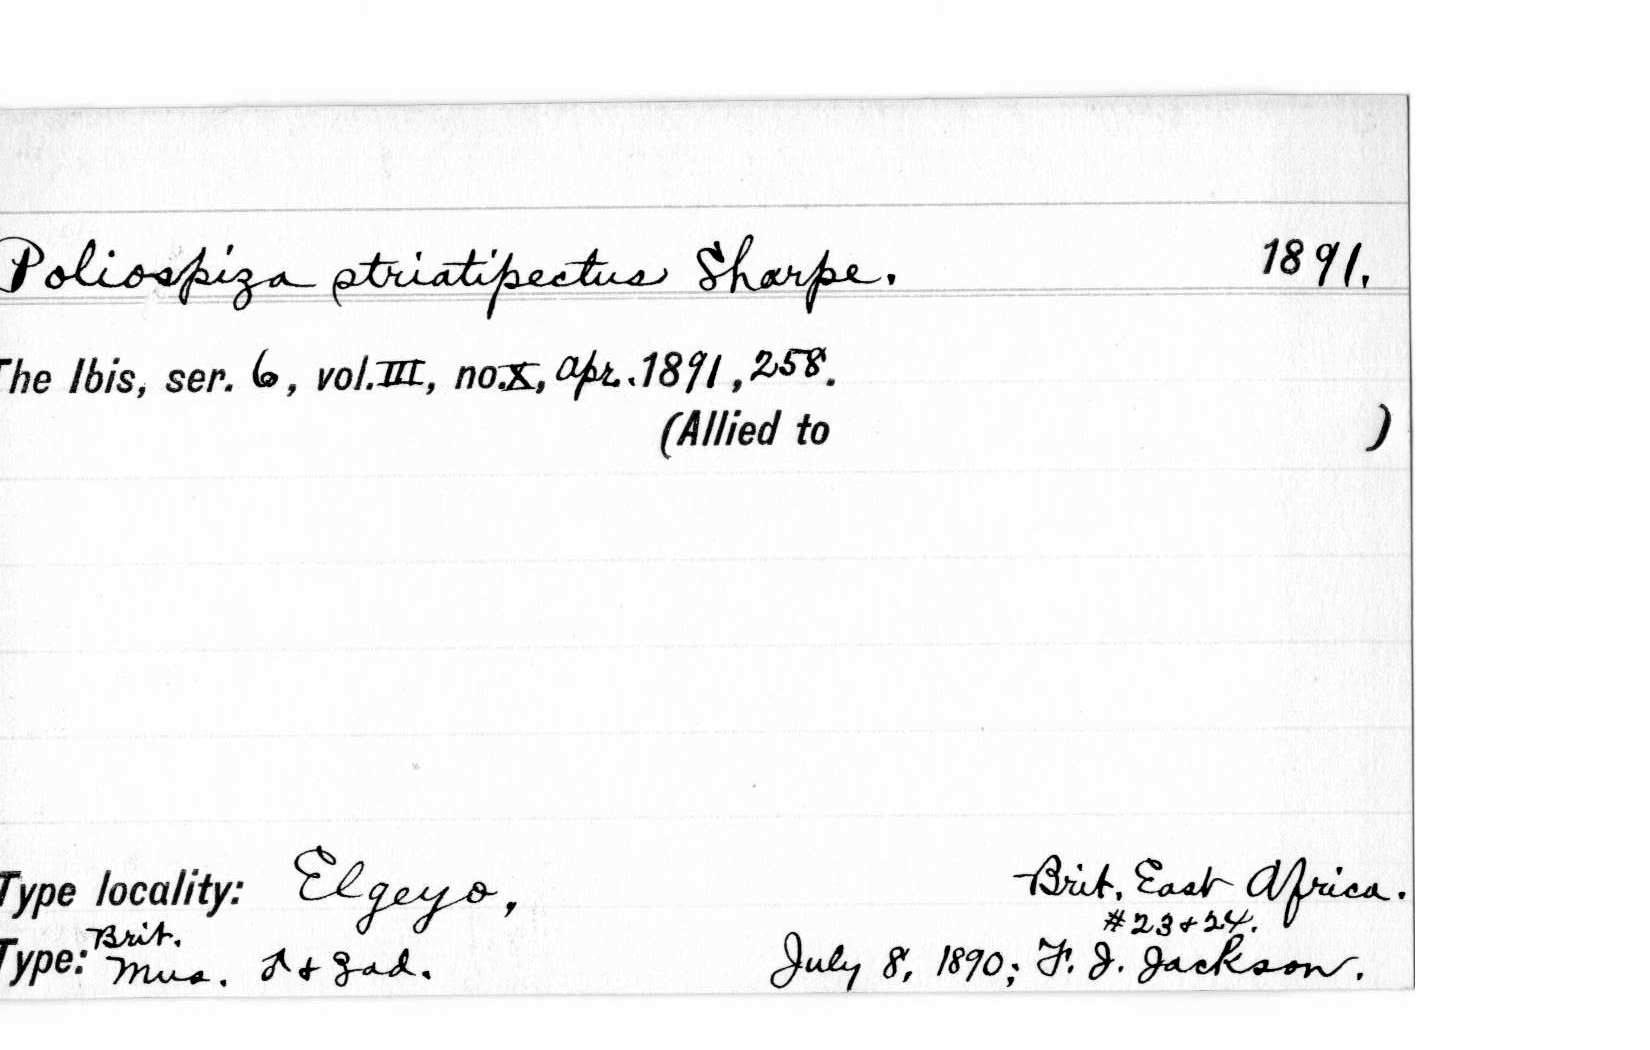 Poliospiza striatipectus Sharpe. 1891.
The Ibis, ser. 6, vol. III, no. X, Apr. 1891, 258.
(Allied to )
Type locality: Elgeyo, Brit. East Africa.
#23 + 24.
Type: Brit. Mus. ♂ + ♀ ad. July 8, 1890; F. J. Jackson.